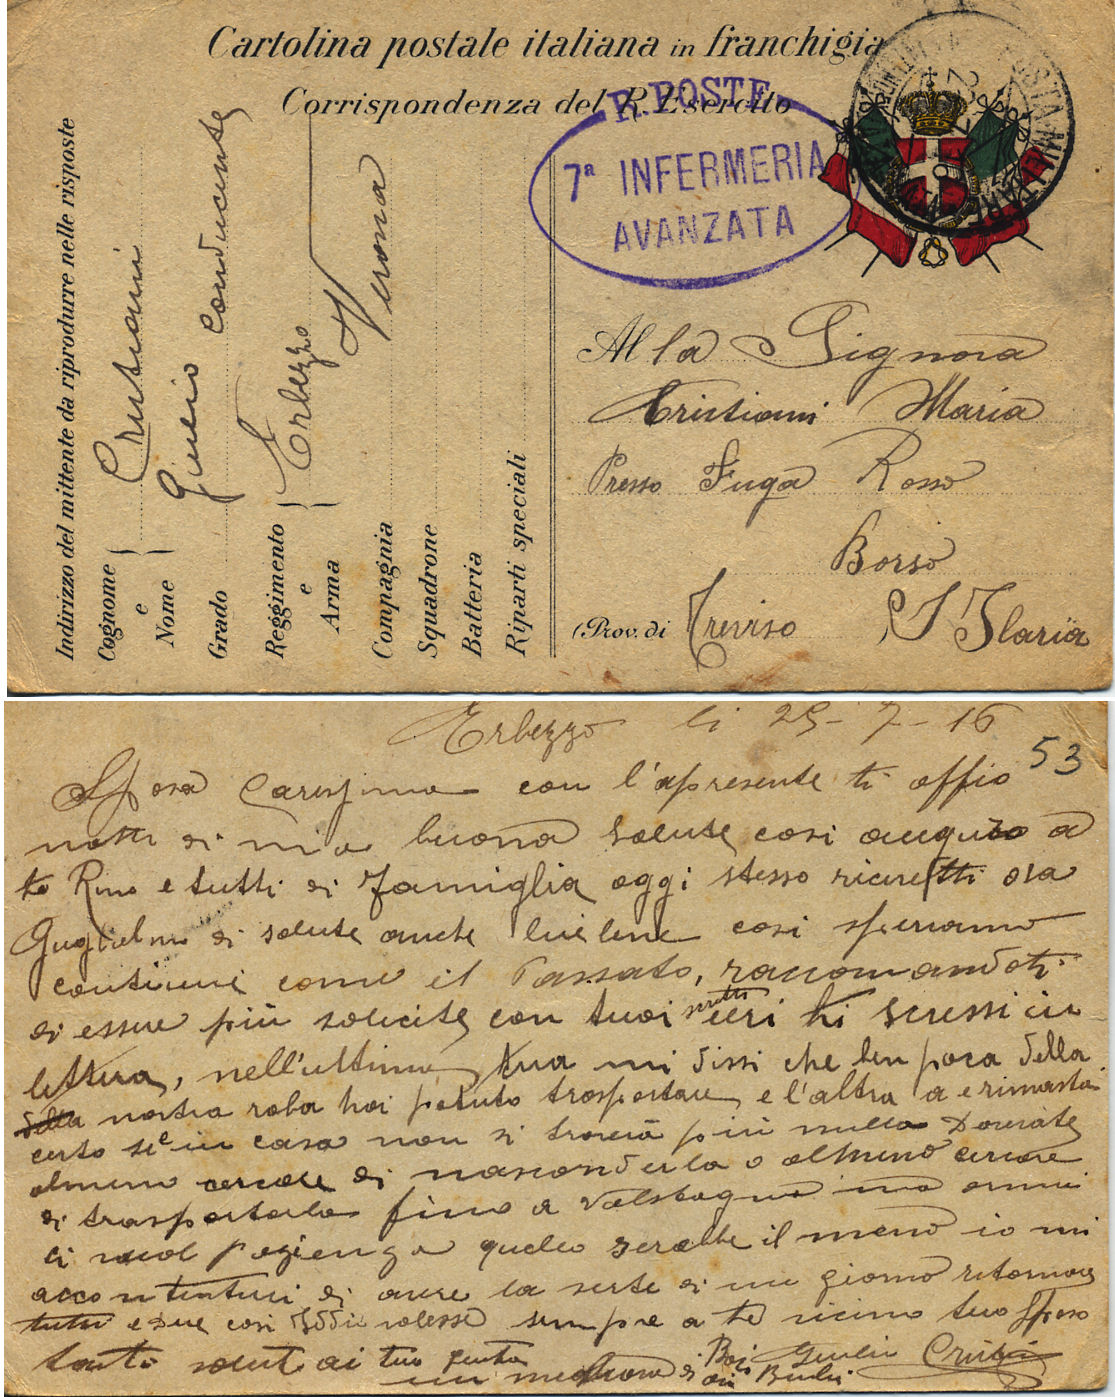 Cartolina postale italiana in franchigia
Corrispondenza del R. Esercito
R. POSTE
7a INFERMERIA
AVANZATA
POSTA MILITARE
Indirizzo del mittente da riprodurre nelle risposte
Cognome e Nome
Cristiani
Giulio
Grado
conducente
Reggimento e Arma
Erbezzo
Verona
Compagnia
Squadrone
Batteria
Riparti speciali
Alla Signora
Cristiani Maria
Presso Fuga Rosso
Borso
(Prov. di Treviso
S Ilaria
Erbezzo li 25-7-16
53
Sposa Carissima con l'apresente ti offio
di mia buona salute cosi auguro a
te Rino e tutti di famiglia oggi stesso ora
Guglielmo di salute anche lui bene cosi speriamo
continui come il Passato, raccomandoti
di essere più solicita con tuoi scritti ieri ti scrissi in
lettera, nell'ultima tua mi dissi che ben poca della
della nostra roba hai potuto trasportare e l'altra a e rimasta
certo se in casa non si troverà più nulla Dovriate
almeno cercare di nasconderla o almeno cercare
di trasportarla fino a Valstagna ma ormai
ci vuol pazienza quello sarebbe il meno io mi
accontenturi di avere la sorte di un giorno ritornare
tutti e Due cosi Iddio volesse sempre a te vicino tuo Sposo
tanti saluti ai tuo Giulio Cristiani
un di Baci